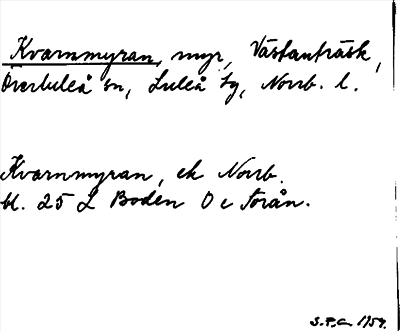 Kvarnmyran, myr, Västanträsk,
Överluleå sn, Luleå tg, Norrb. l.
Kvarnmyran, ek Norrb.
bl. 25 L Boden O c Torån.
S.F.C. 1954.